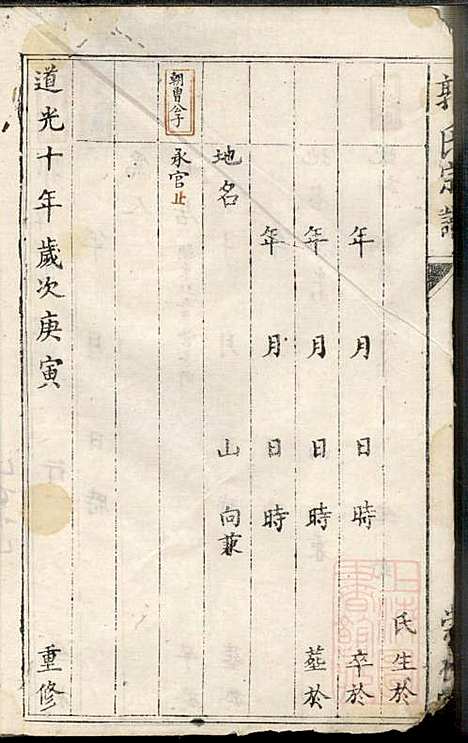 氏宗譜
氏生於
年月日時卒於
年月日時葬於
年月日時
地名山向兼
朝曹公子
承官止
道光十年歲次庚寅重修